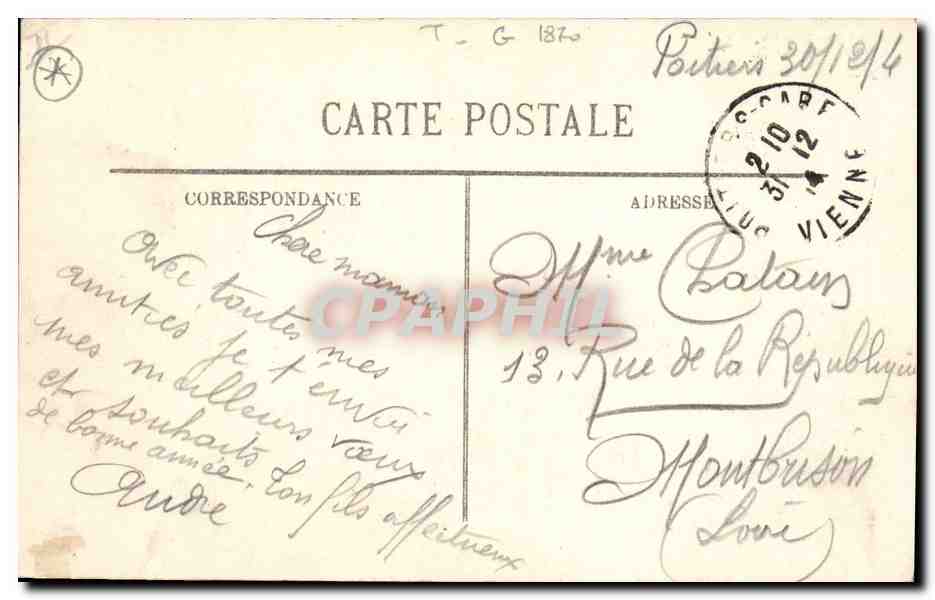 T - G 1870
Poitiers 30/12/4
CARTE POSTALE
CORRESPONDANCE
ADRESSE
RS-GARE
2 10
31 12
14
VIENNE
Chère maman,
avec toutes mes
amitiés je t'envoie
mes meilleurs vœux
et souhaits
de bonne année. Ton fils affectueux
André
Mme Chatain
13, Rue de la République
Montbrison
(Loire)
CPAPHIL